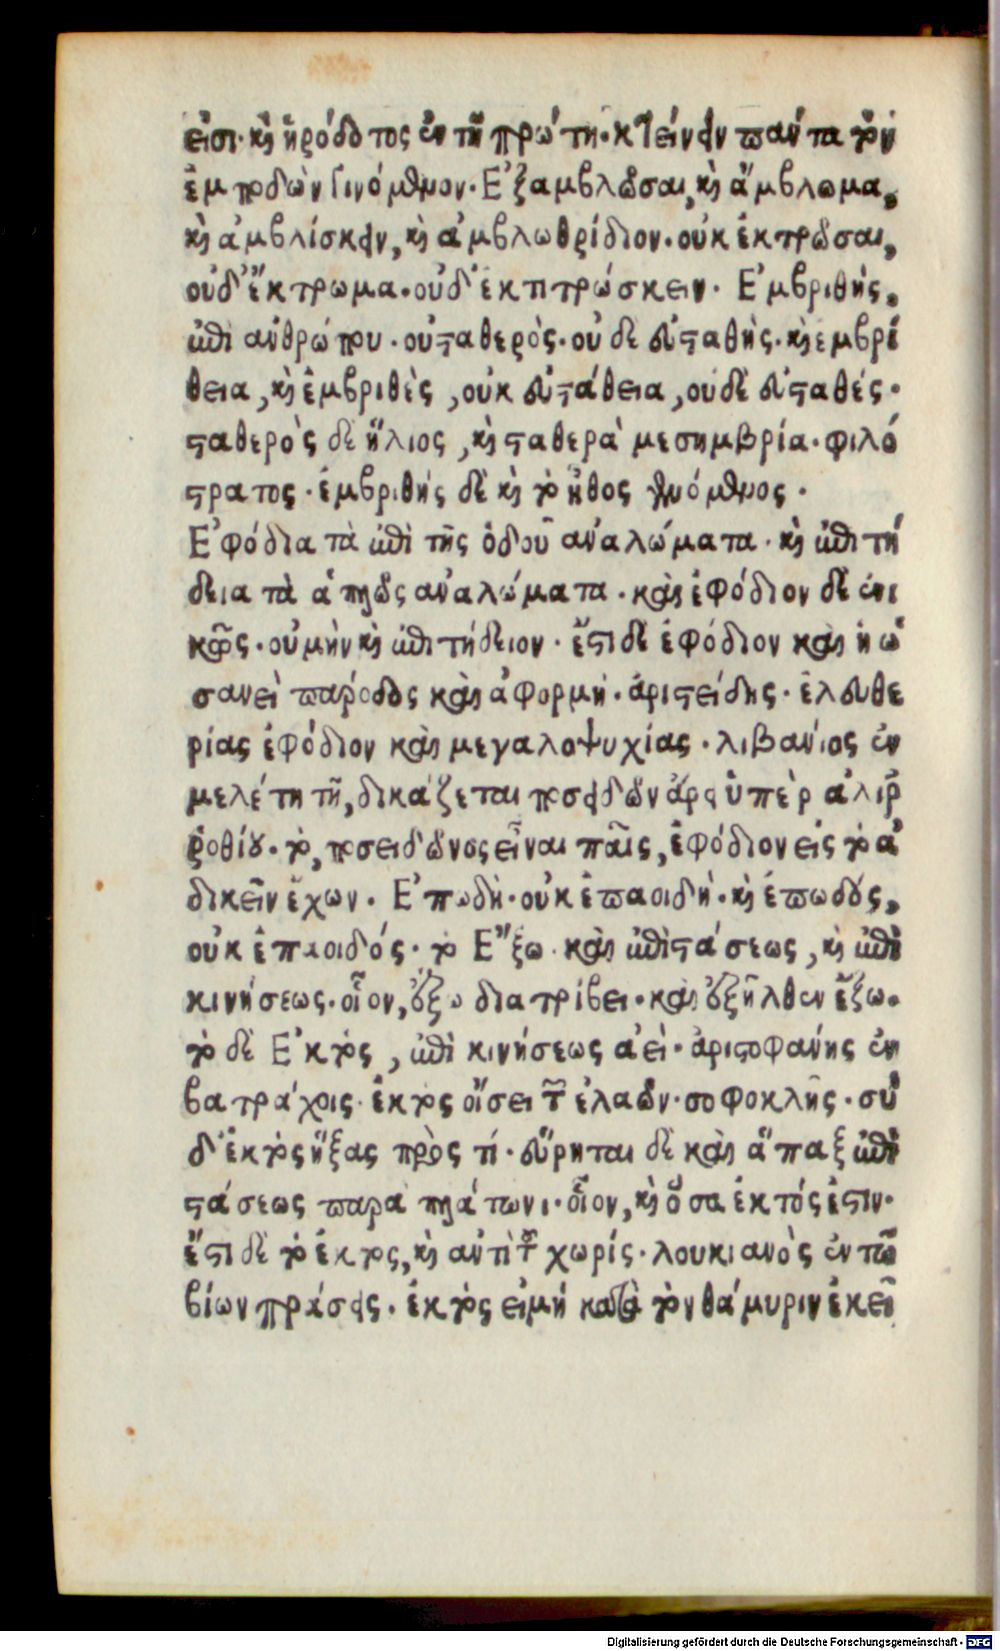 εισι. καὶ ἡρόδοτος ἐν τῇ πρώτῃ. κτείνειν πάντα τὸν
ἐμποδὼν γινόμενον. Ἐξαμβλῶσαι, καὶ ἄμβλωμα,
καὶ ἀμβλίσκειν, καὶ ἀμβλωθρίδιον. οὐκ ἐκτρῶσαι,
οὐδ' ἔκτρωμα. οὐδ' ἐκτιτρώσκειν. Ἐμβριθής,
ἐπὶ ἀνθρώπου. οὐ σταθερὸς. οὐδὲ εὐσταθὴς. καὶ ἐμβρί
θεια, καὶ ἐμβριθὲς, οὐκ εὐστάθεια, οὐδὲ εὐσταθές.
σταθερὸς δὲ ἥλιος, καὶ σταθερὰ μεσημβρία. φιλό
στρατος. ἐμβριθής δὲ καὶ τὸ ἦθος γενόμενος.
Ἐφόδια τὰ ἐπὶ τῆς ὁδοῦ ἀναλώματα. καὶ ἐπιτή
δεια τὰ ἁπλῶς ἀναλώματα. καὶ ἐφόδιον δὲ ἑνι
κῶς. οὐ μὴν καὶ ἐπιτήδειον. ἔστι δὲ ἐφόδιον καὶ ἡ ὡ
σανεὶ πάροδος καὶ ἀφορμή. ἀριστείδης. ἐλευθε
ρίας ἐφόδιον καὶ μεγαλοψυχίας. λιβάνιος ἐν
μελέτῃ τῇ, δικάζεται ποσειδῶν ἄρει ὑπὲρ ἁλιρ
ῥοθίου. τὸ, ποσειδῶνος εἶναι παῖς, ἐφόδιον εἰς τὸ ἀ
δικεῖν ἔχων. Ἐπωδὴ. οὐκ ἐπαοιδὴ. καὶ ἐπωδός,
οὐκ ἐπαοιδός. τὸ Ἔξω καὶ ἐπὶ στάσεως, καὶ ἐπὶ
κινήσεως. οἷον, ἔξω διατρίβει. καὶ ἐξῆλθεν ἔξω.
τὸ δὲ Ἐκτὸς, ἐπὶ κινήσεως ἀεὶ. ἀριστοφάνης ἐν
βατράχοις. ἐκτὸς οἴσει τῶν ἐλαῶν. σοφοκλῆς. σὺ
δ' ἐκτὸς ᾖξας πρὸς τί. εὕρηται δὲ καὶ ἅπαξ ἐπὶ
στάσεως παρὰ πλάτωνι. οἷον, καὶ ὅσα ἐκτός ἐστιν.
ἔστι δὲ τὸ ἐκτὸς, καὶ ἀντὶ τοῦ χωρίς. λουκιανὸς ἐν τῶ
βίων πράσεις. ἐκτὸς εἰμή κατὰ τὸν θάμυριν ἐκεῖ
Digitalisierung gefördert durch die Deutsche Forschungsgemeinschaft - DFG